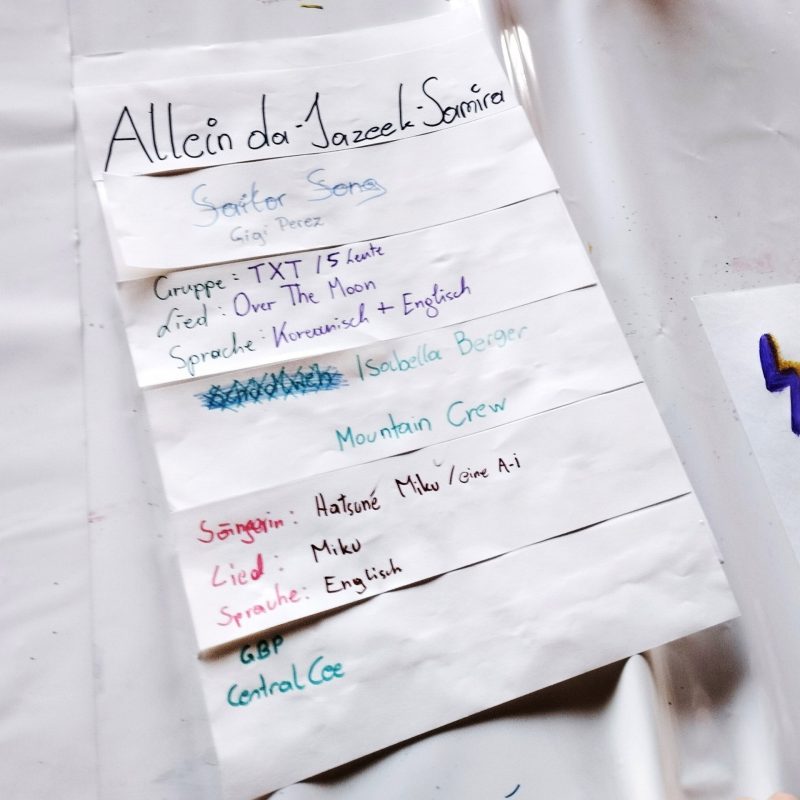 Allein da-Jazeek-Samira
Sailor Song
Gigi Perez
Gruppe: TXT /5 Leute
Lied: Over The Moon
Sprache: Koreanisch + Englisch
Isabella Berger
Mountain Crew
Sängerin: Hatsuné Miku /eine A-i
Lied: Miku
Sprache: Englisch
GBP
Central Cee